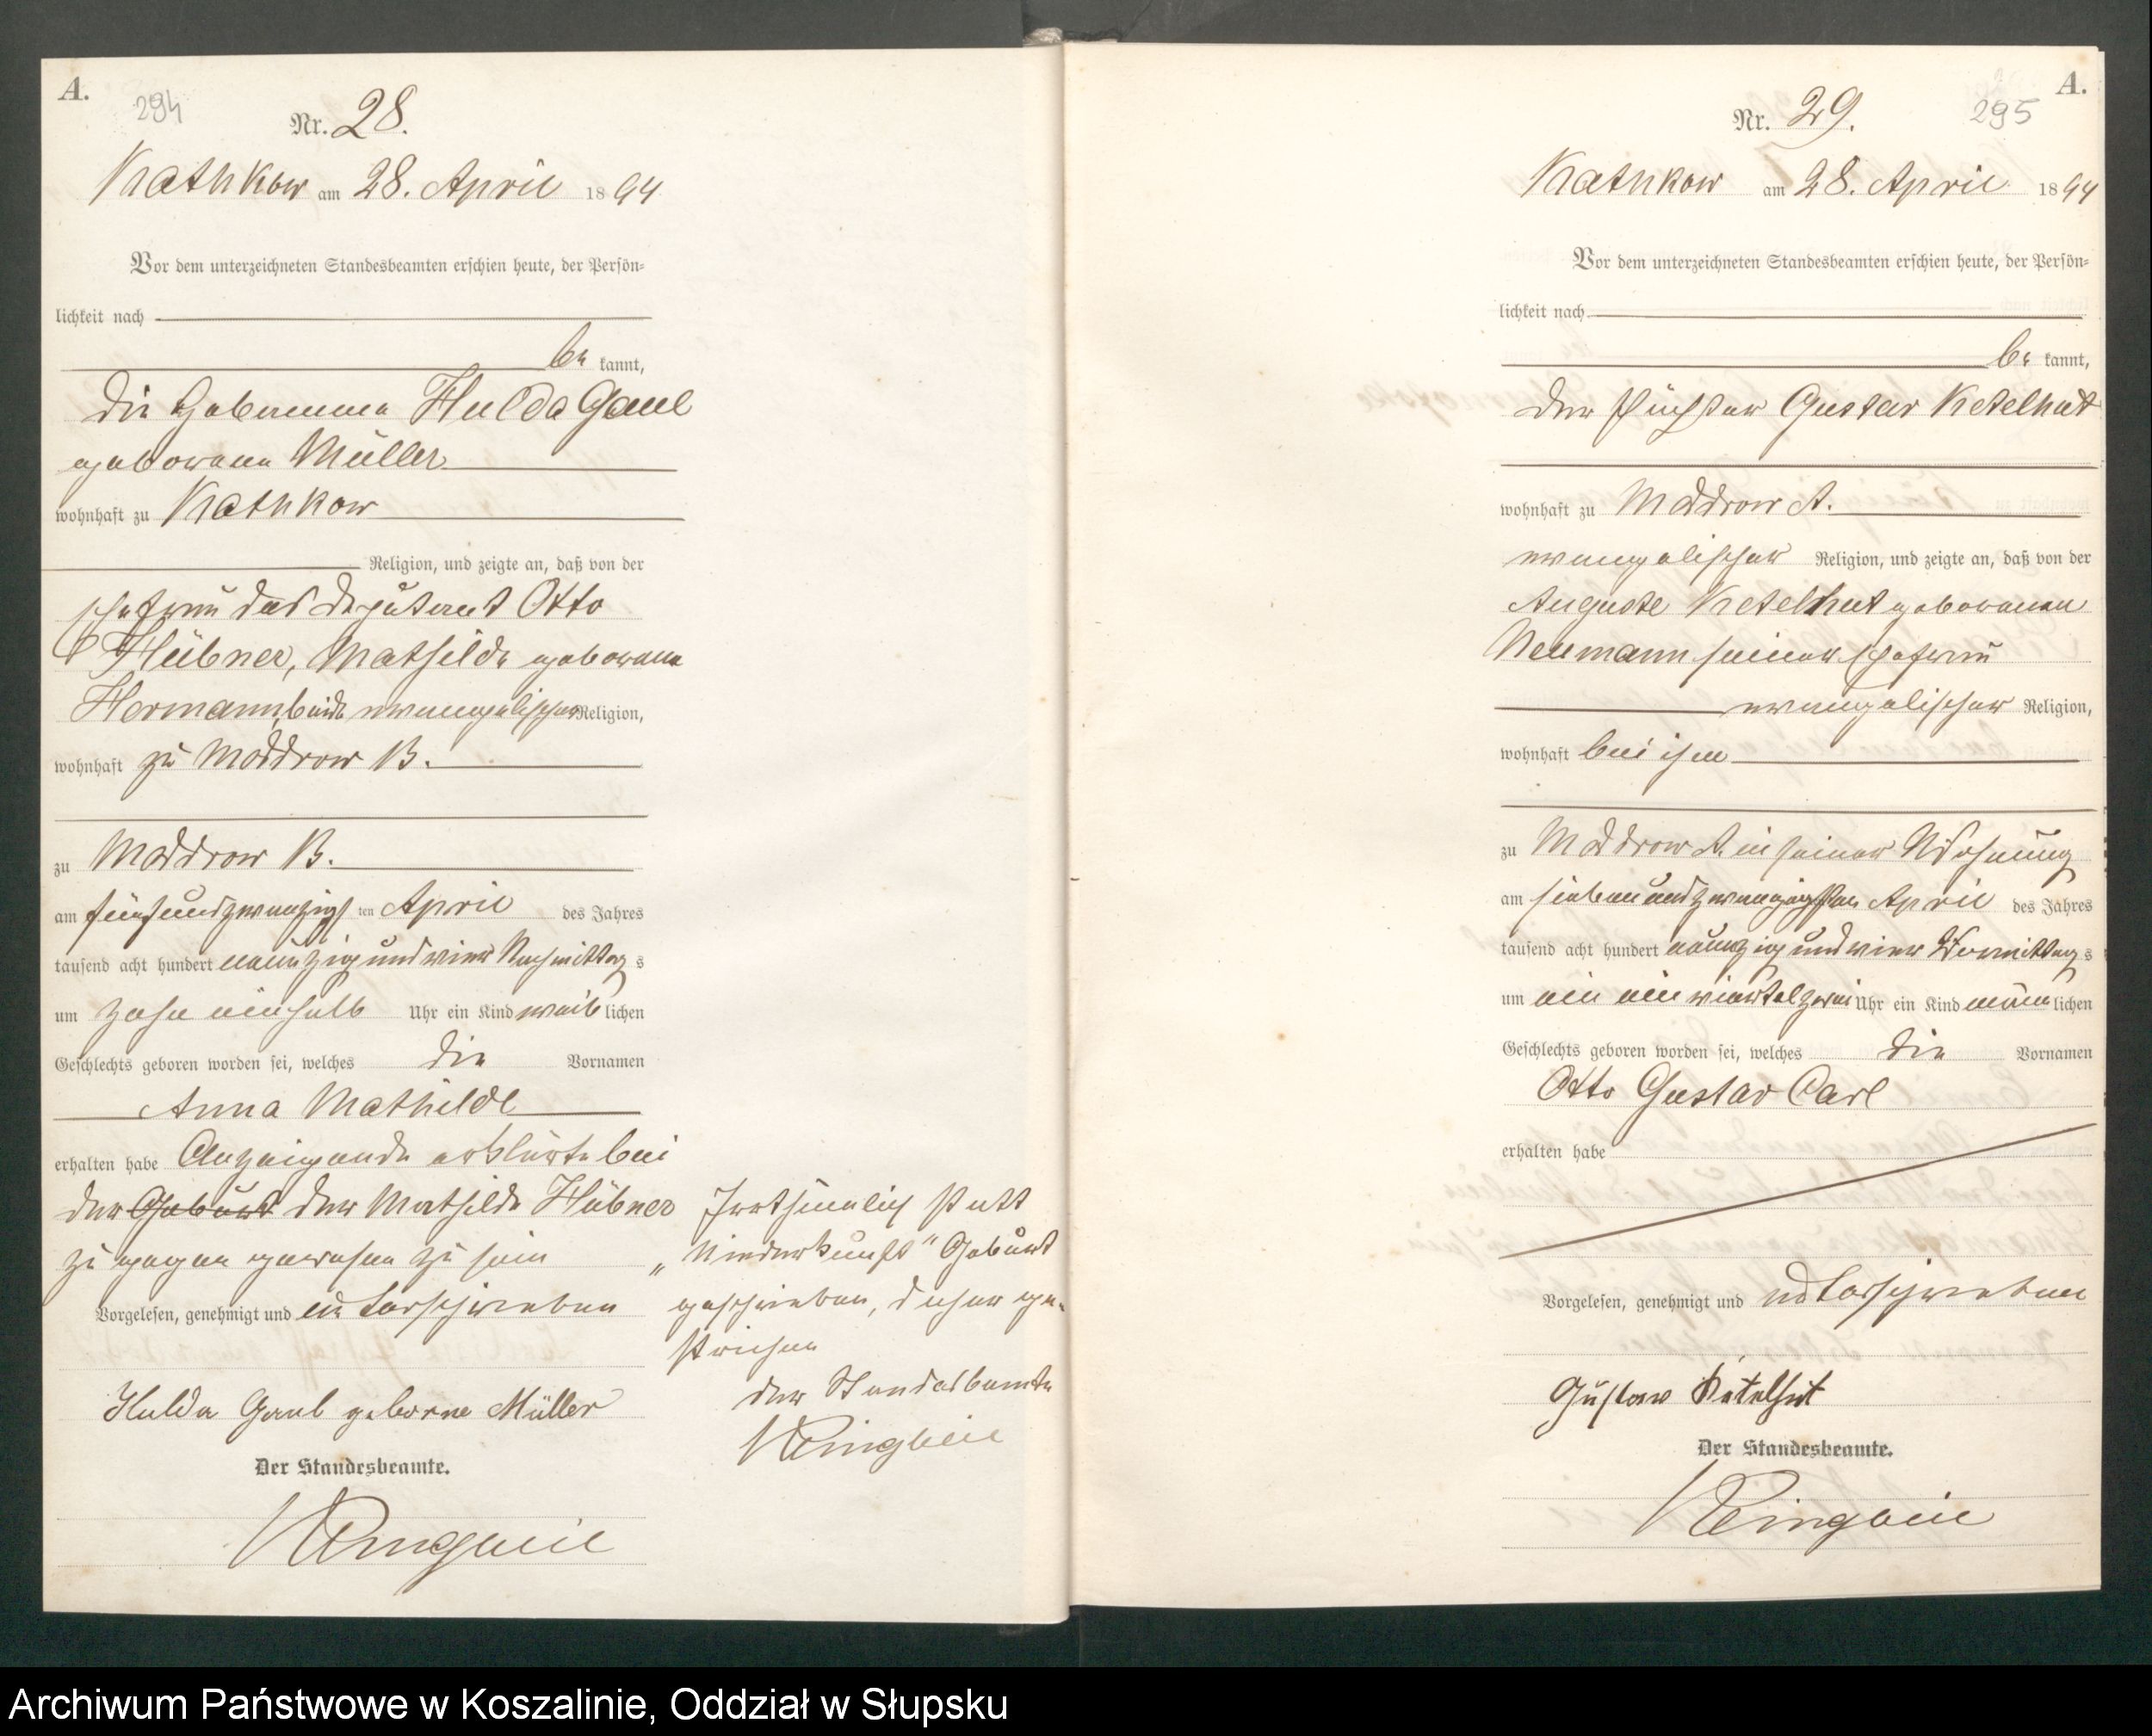 A.
294
Nr. 28.
Kathkow am 28. April 1894
Vor dem unterzeichneten Standesbeamten erschien heute, der Persön-
lichkeit nach
be kannt,
die Hebamme Hulda Gaul
geborene Müller
wohnhaft zu Kathkow
Religion, und zeigte an, daß von der
Ehefrau des Deputant Otto
Hübner, Mathilde geborene
Hermann, beide evangelischer Religion,
wohnhaft zu Moddrow B.
zu Moddrow B.
am fünfundzwanzigs ten April des Jahres
tausend acht hundert neunzig und vier Nachmittag s
um zehn einhalb Uhr ein Kind weib lichen
Geschlechts geboren worden sei, welches die Vornamen
Anna Mathilde
erhalten habe Anzeigende erklärte bei
der Geburt der Mathilde Hübner
zugegen gewesen zu sein
Vorgelesen, genehmigt und unterschrieben
Hulda Gaul geborne Müller
Der Standesbeamte.
Irrthümlich statt
„Niederkunft" Geburt
geschrieben, daher ge-
strichen
der Standesbeamte
A.
295
Nr. 29.
Kathkow am 28. April 1894
Vor dem unterzeichneten Standesbeamten erschien heute, der Persön-
lichkeit nach
be kannt,
der Pächter Gustav Ketelhut
wohnhaft zu Moddrow A.
evangelischer Religion, und zeigte an, daß von der
Auguste Ketelhut geborenen
Neumann seiner Ehefrau
evangelischer Religion,
wohnhaft bei ihm
zu Moddrow A. in seiner Wohnung
am siebenundzwanzigsten April des Jahres
tausend acht hundert neunzig und vier Vormittag s
um ein ein viertel zwei Uhr ein Kind männ lichen
Geschlechts geboren worden sei, welches die Vornamen
Otto Gustav Carl
erhalten habe
Vorgelesen, genehmigt und unterschrieben
Gustav Ketelhut
Der Standesbeamte.
Archiwum Państwowe w Koszalinie, Oddział w Słupsku